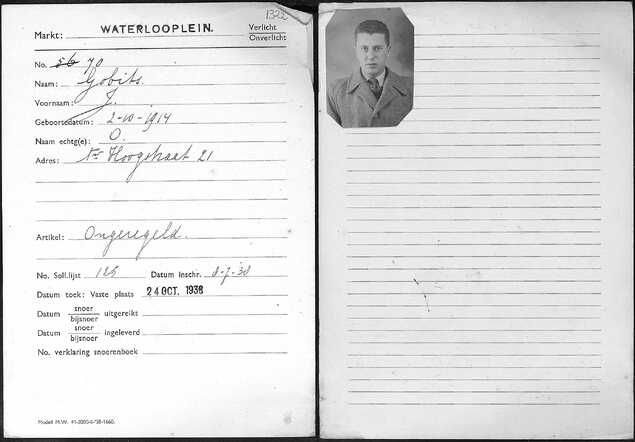 1322
Markt: WATERLOOPLEIN. Verlicht
Onverlicht
No. 56 70
Naam: Gobits.
Voornaam: J.
Geboortedatum: 2-10-1914
Naam echtg(e): O.
Adres: Hoogstraat 21
Artikel: Ongeregeld.
No. Soll.lijst 125 Datum Inschr. 8-7-38
Datum toek: Vaste plaats 24 OCT. 1938
Datum snoer
bijsnoer uitgereikt
Datum snoer
bijsnoer ingeleverd
No. verklaring snoerenboek
Model M.W. 41-2000-6-'38-1660.